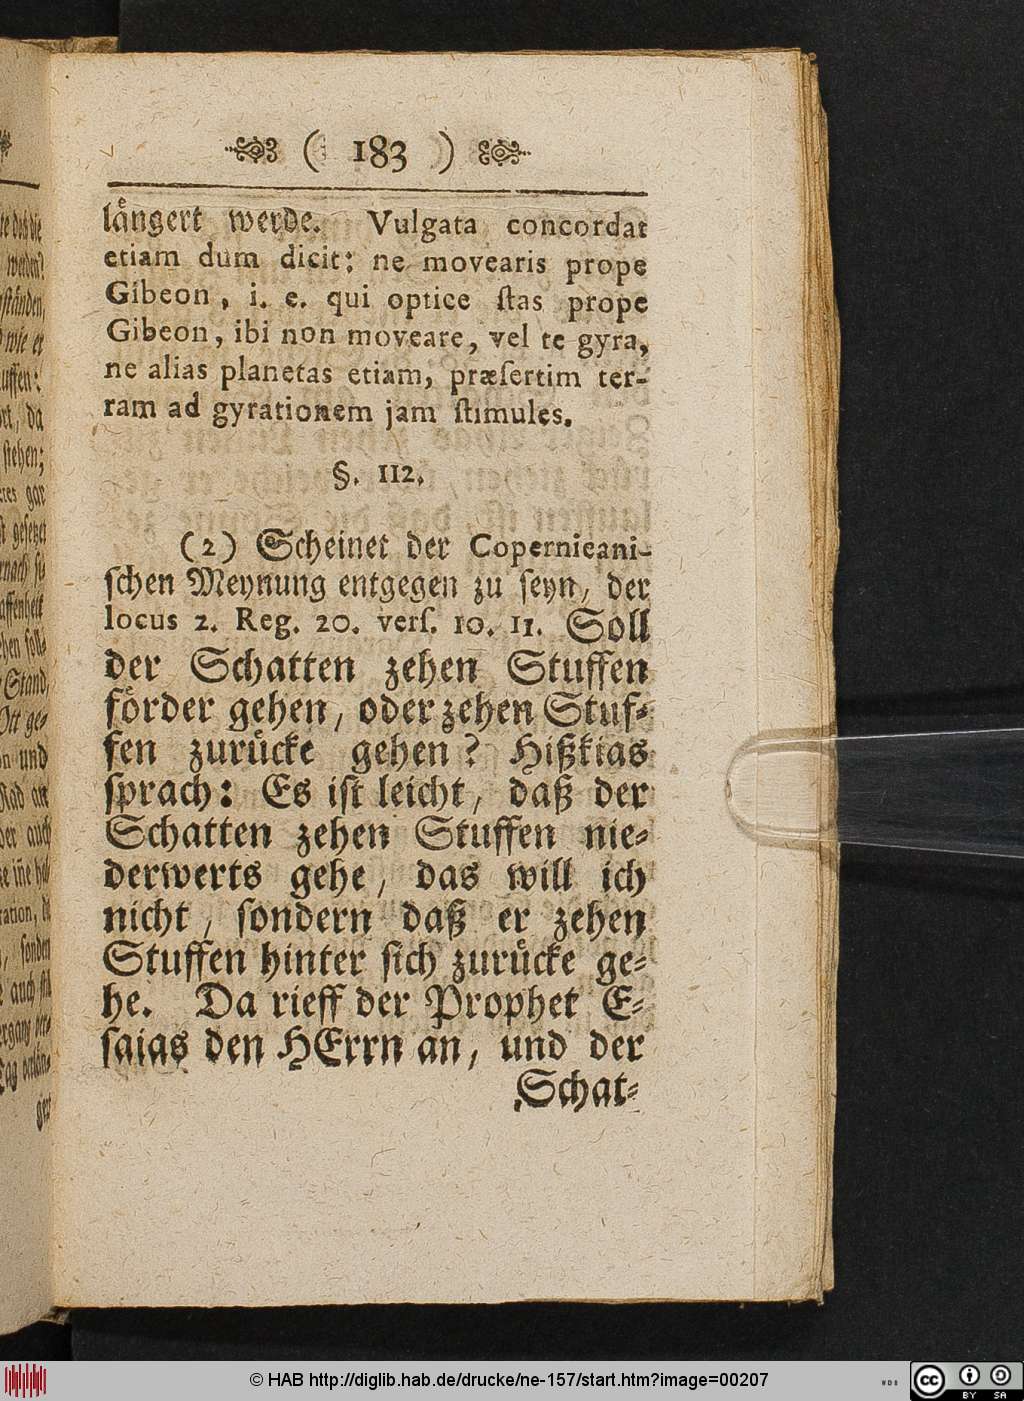 ( 183 )
laͤngert werde. Vulgata concordat
etiam dum dicit: ne movearis prope
Gibeon, i. e. qui optice ſtas prope
Gibeon, ibi non moveare, vel te gyra,
ne alias planetas etiam, præſertim ter-
ram ad gyrationem jam ſtimules.
§. 112.
(2) Scheinet der Copernicani-
ſchen Meynung entgegen zu ſeyn, der
locus 2. Reg. 20. verſ. 10. 11. Soll
der Schatten zehen Stuffen
foͤrder gehen, oder zehen Stuf-
fen zuruͤcke gehen? Hißkias
ſprach: Es iſt leicht, daß der
Schatten zehen Stuffen nie-
derwerts gehe, das will ich
nicht, ſondern daß er zehen
Stuffen hinter ſich zuruͤcke ge-
he. Da rieff der Prophet E-
ſaias den HErrn an, und der
Schat-
© HAB http://diglib.hab.de/drucke/ne-157/start.htm?image=00207
cc BY SA